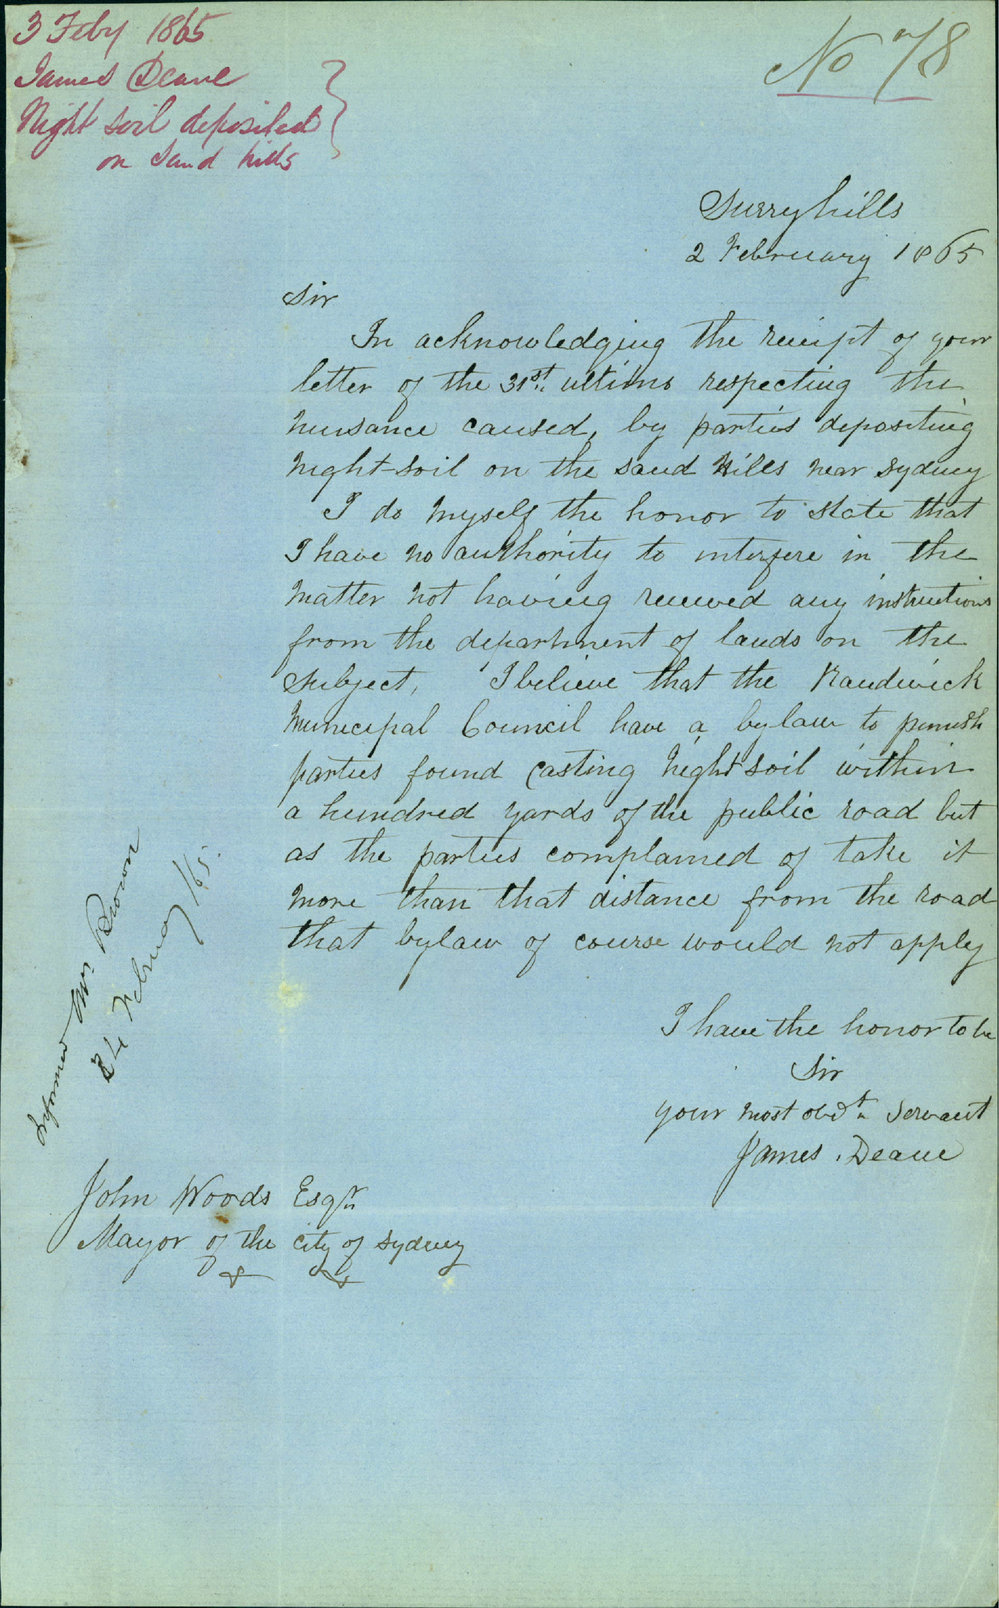 3 Feby 1865
James Deane
Night soil deposited
on Sand hills
No 78
Surryhills
2 February 1865
Sir
In acknowledging the receipt of your
letter of the 31st ultimo respecting the
nuisance caused, by parties depositing
night-soil on the sand hills near Sydney
I do myself the honor to state that
I have no authority to interfere in the
matter not having received any instructions
from the department of lands on the
subject, I believe that the Randwick
Municipal Council have a bylaw to punish
parties found casting night soil within
a hundred yards of the public road but
as the parties complained of take it
more than that distance from the road
that bylaw of course would not apply
I have the honor to be
Sir
your most obdt servant
James Deane
Informed Mr Brown
24 February /65.
John Woods Esqr
Mayor of the City of Sydney
& &